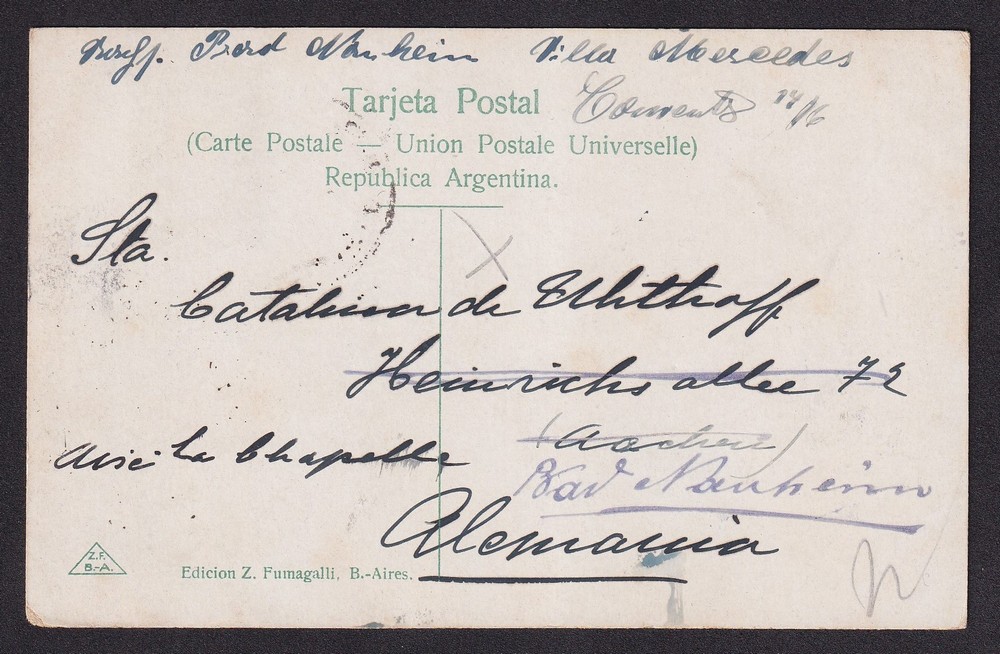 Bad Nauheim Villa Mercedes
Tarjeta Postal
(Carte Postale — Union Postale Universelle)
Republica Argentina.
Sta.
Catalina de Uhthoff
Heinrichs allee 72
Aixe la Chapelle
(Aachen)
Bad Nauheim
Alemania
Z.F.
B.-A.
Edicion Z. Fumagalli, B.-Aires.